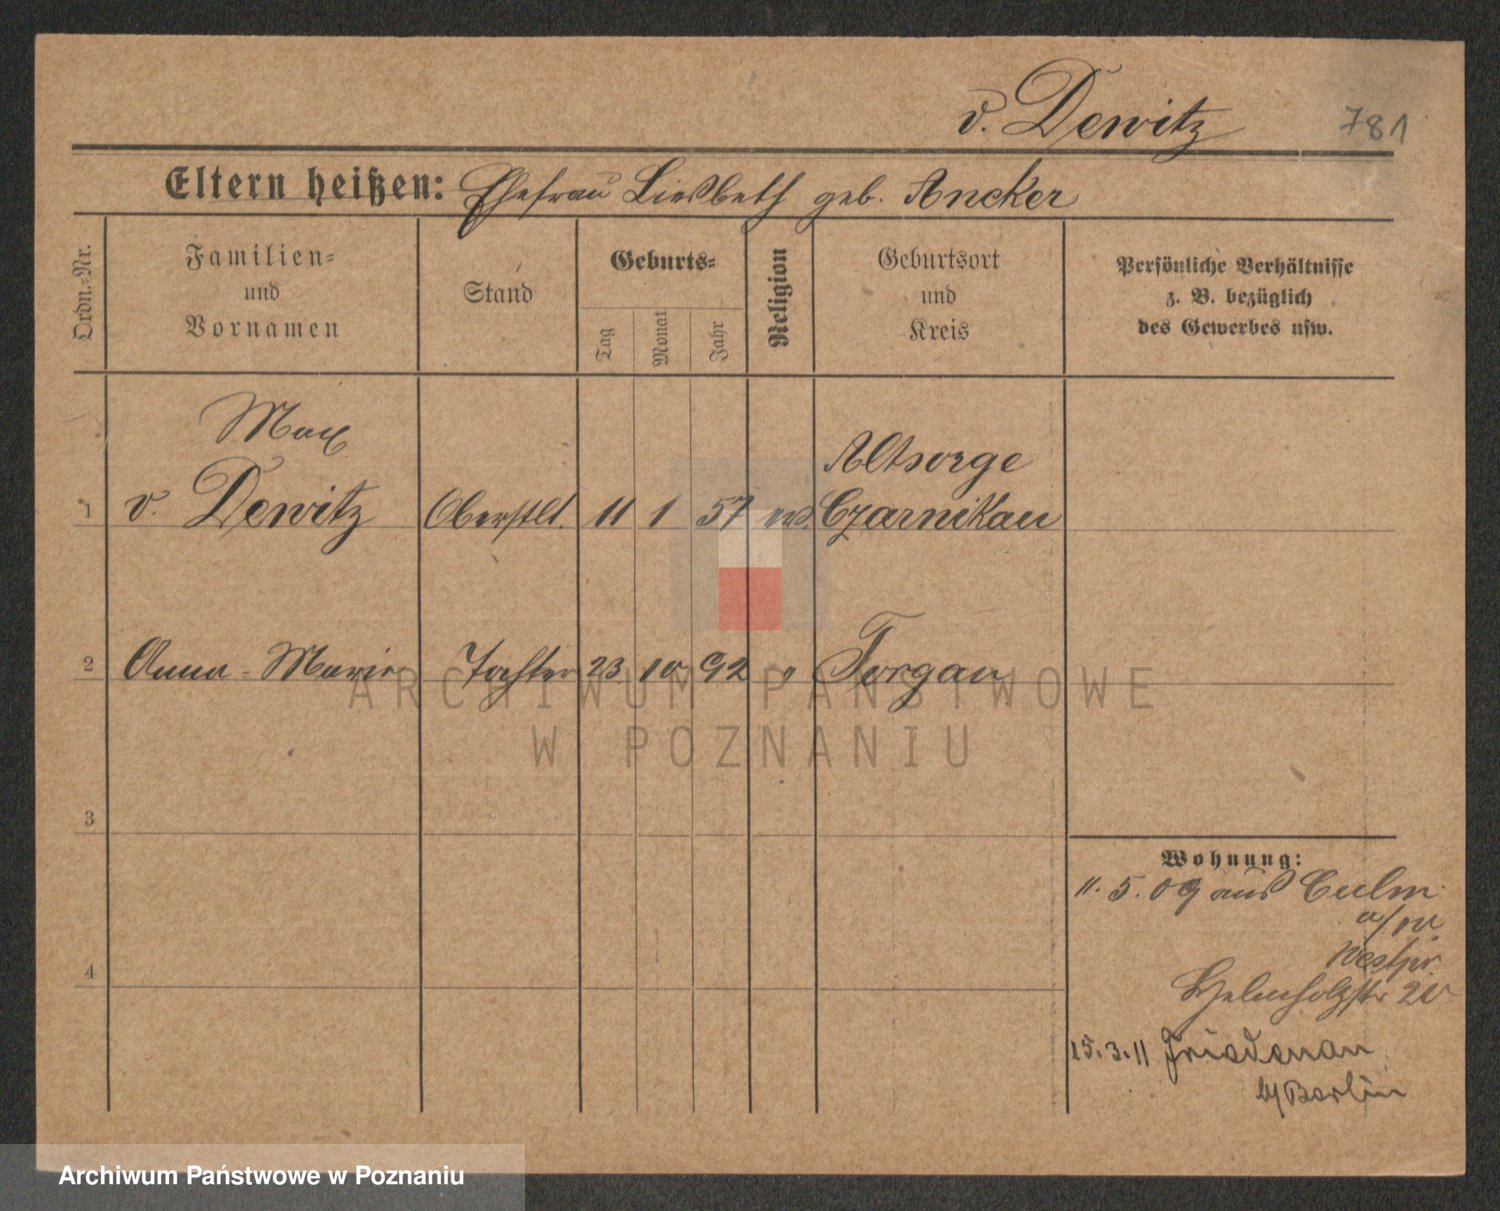 v. Dewitz 781
Eltern heißen: Ehefrau Liesbeth geb. Ancker
Ordn.-Nr.
Familien-
und
Vornamen
Stand
Geburts-
Tag
Monat
Jahr
Religion
Geburtsort
und
Kreis
Persönliche Verhältnisse
z. B. bezüglich
des Gewerbes usw.
Max
Altsorge
1 v. Dewitz Oberstlt. 11 1 57 Czarnikau
2 Anna-Marie Tochter 23 10 92 Torgau
3
4
Wohnung:
11.5.09 aus Culm
a/W.
Westpr.
Helmholzstr
15.3.11 Friedenau
b/Berlin
ARCHIWUM PAŃSTWOWE
W POZNANIU
Archiwum Państwowe w Poznaniu